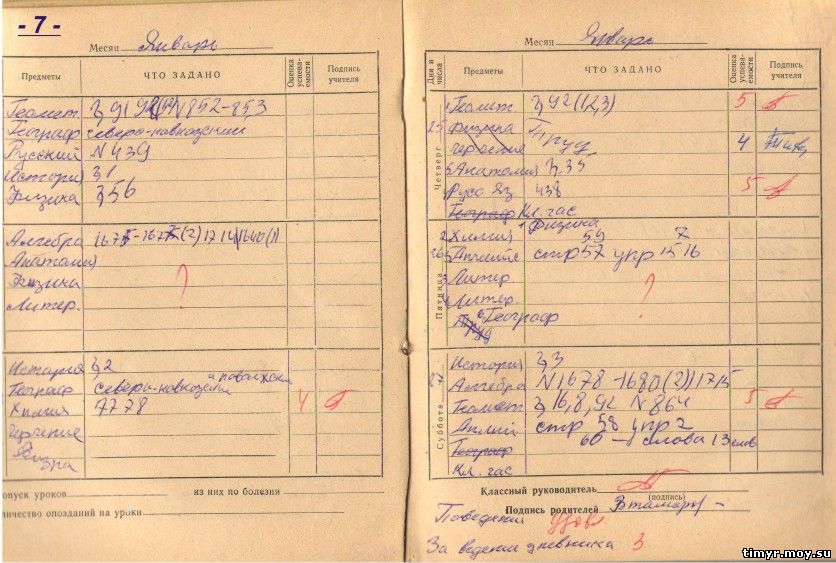 - 7 -
Месяц Январь
Предметы ЧТО ЗАДАНО Оценка успева-емости Подпись учителя
Геомет. § 91 92 N 852-853
Географ северо-кавказский
Русский N 439
История § 1
Физика § 56
Алгебра 1675-1677 (2) 1714 1680
Анатомия
Физика ?
Литер.
История § 2
Географ северо-кавказский и поволжский
Химия 77 78 4
Черчение
Физра
опуск уроков из них по болезни
личество опозданий на уроки
Месяц Январь
Дни и числа Предметы ЧТО ЗАДАНО Оценка успева-емости Подпись учителя
Четверг 25
1 Геомет. § 92 (1,2,3) 5
Физика
Черчение Труд 4
Анатомия § 35
Русс яз 438 5
Географ Кл. час
Пятница 26
1 Физика
2 Химия 59 7
Англише стр 57 упр 15 16
Литер. ?
Литер.
Труд 6 Географ
Суббота 27
История § 3
Алгебра N 1678-1680 (2) 1715
Геомет § 16, 8, 92 N 864 5
Англий стр 58 упр 2
Географ 60 - слова 13 слов
Кл. час
Классный руководитель
(подпись)
Подпись родителей
Поведения удовл
За ведения дневника 3.
timyr.moy.su